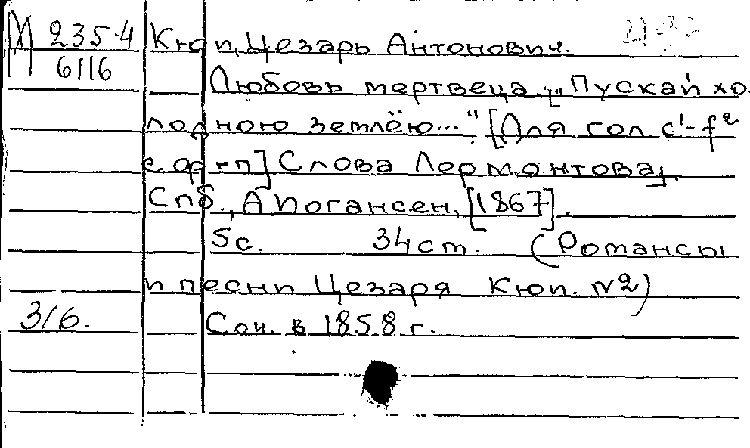 М 235·4 Кюи, Цезарь Антонович.
6116
Любовь мертвеца. „Пускай хо-
лодною землёю..." [Для гол. c¹-f²
с ф-п] Слова Лермонтова.
Спб., А Иогансен, [1867].
5с. 34 см. (Романсы
и песни Цезаря Кюи. №2)
316. Соч. в 1858 г.